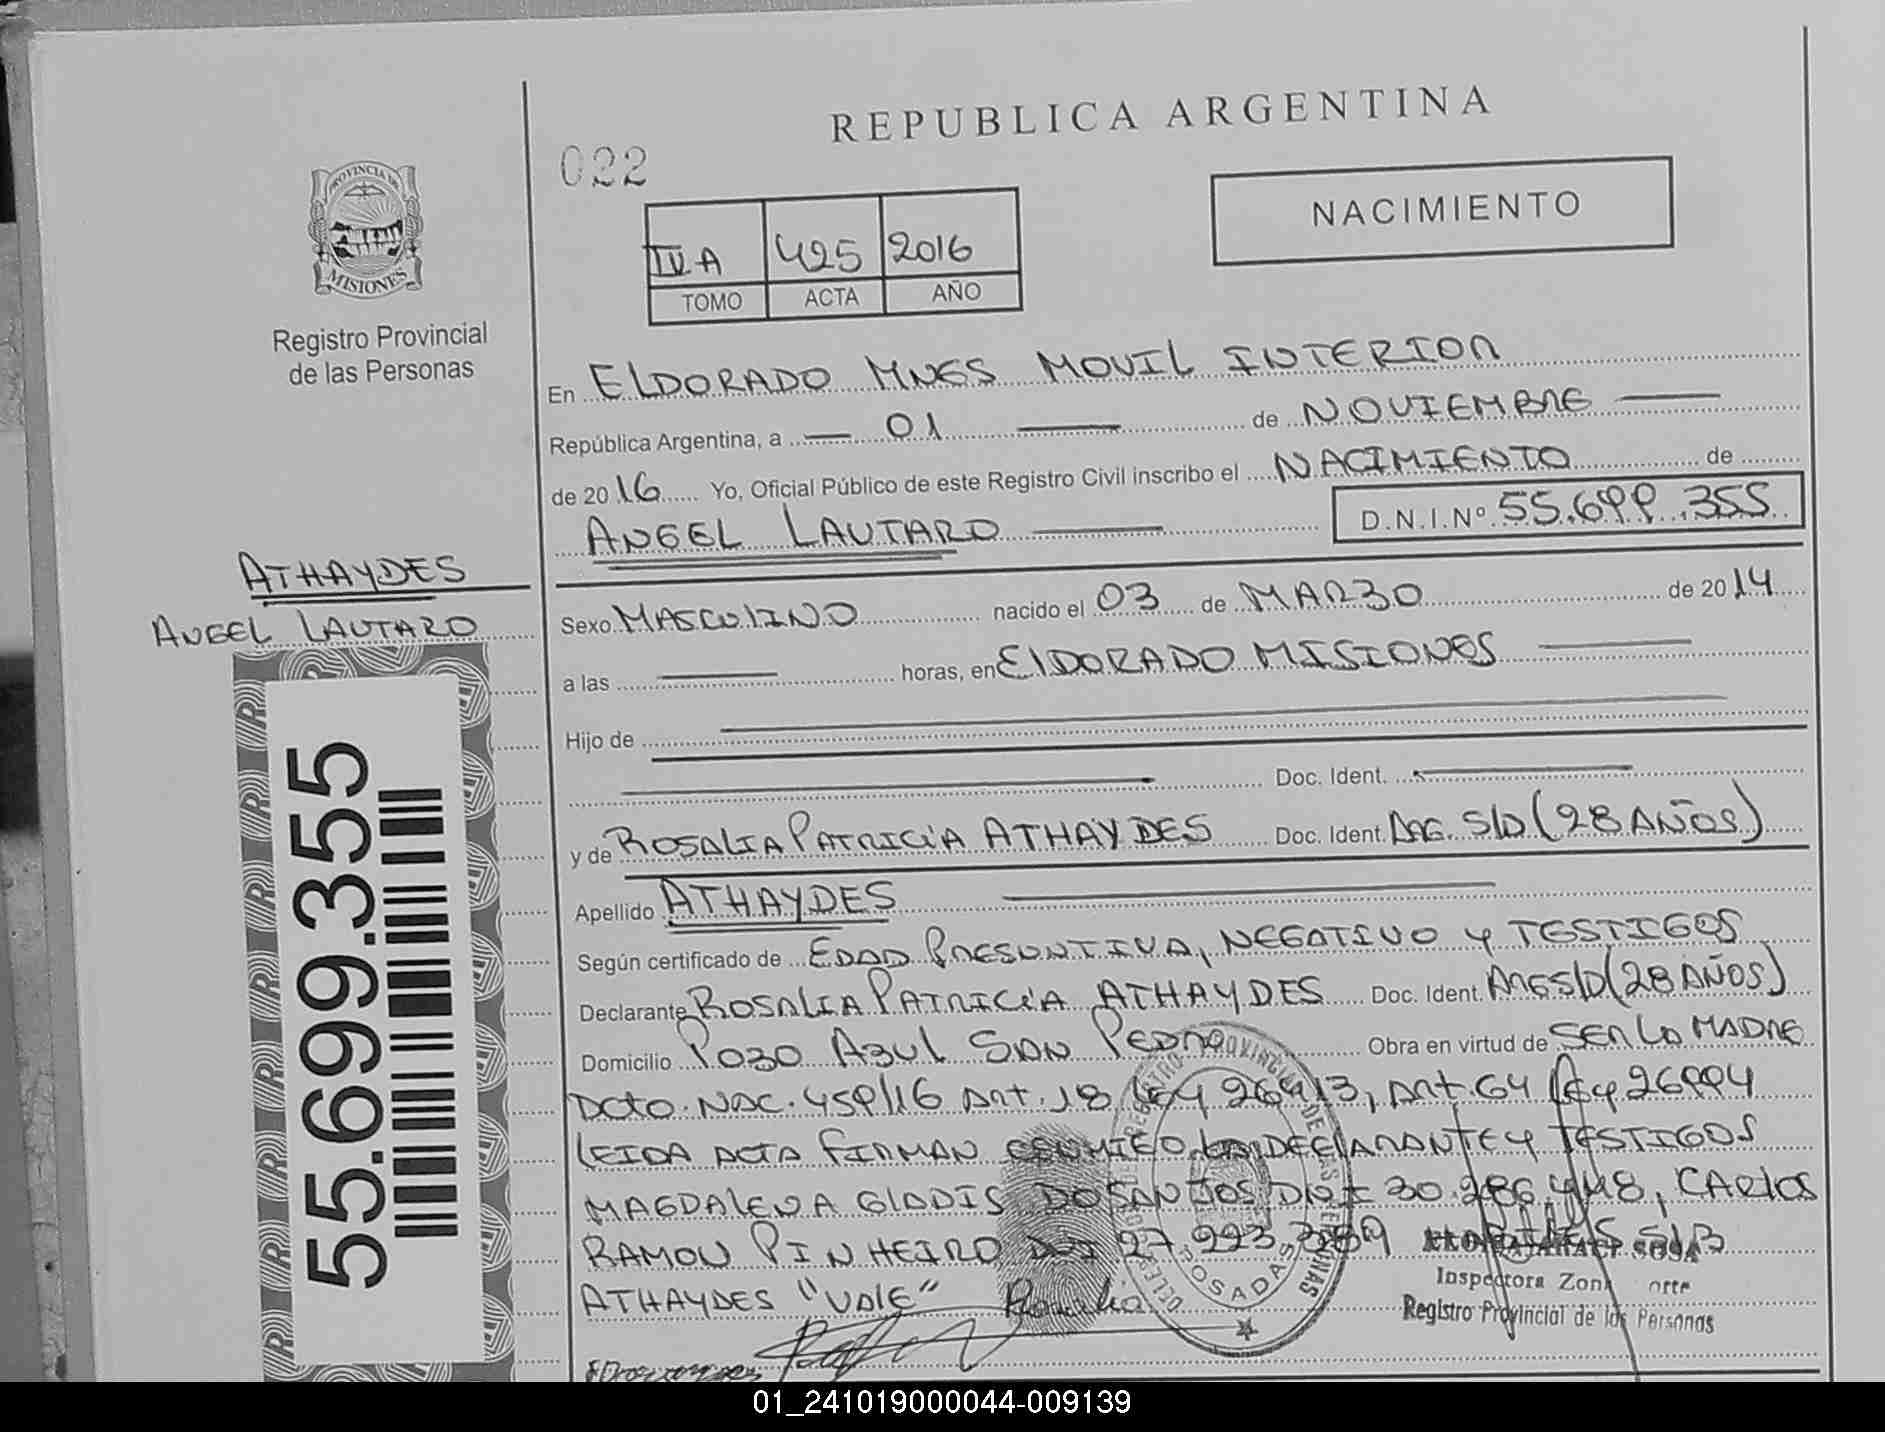 REPUBLICA ARGENTINA
022
NACIMIENTO
PROVINCIA DE
MISIONES
Registro Provincial
de las Personas
IV A 425 2016
TOMO ACTA AÑO
En ELDORADO MNES MOVIL INTERIOR
República Argentina, a 01 de NOVIEMBRE
de 2016 Yo, Oficial Público de este Registro Civil inscribo el NACIMIENTO de
ANGEL LAUTARO D.N.I.Nº 55.699.355
ATHAYDES
ANGEL LAUTARO
55.699.355
Sexo MASCULINO nacido el 03 de MARZO de 2014
a las horas, en ELDORADO MISIONES
Hijo de
Doc. Ident.
y de ROSALIA PATRICIA ATHAYDES Doc. Ident. ARG. S/D (28 AÑOS)
Apellido ATHAYDES
Según certificado de EDAD PRESUNTIVA, NEGATIVO Y TESTIGOS
Declarante ROSALIA PATRICIA ATHAYDES Doc. Ident. ARG S/D (28 AÑOS)
Domicilio POZO AZUL SAN PEDRO Obra en virtud de SER LA MADRE
DCTO. NAC. 459/16 ART. 18 LEY 26413, ART. 64 LEY 26994
LEIDA ACTA FIRMAN CONMIGO LA DECLARANTE Y TESTIGOS
MAGDALENA GLADIS DOSANTOS DNI 30.286.448, CARLOS
RAMON PINHEIRO DNI 27.993.389
ATHAYDES "VALE"
Inspectora Zona Norte
Registro Provincial de las Personas
POSADAS
01_241019000044-009139